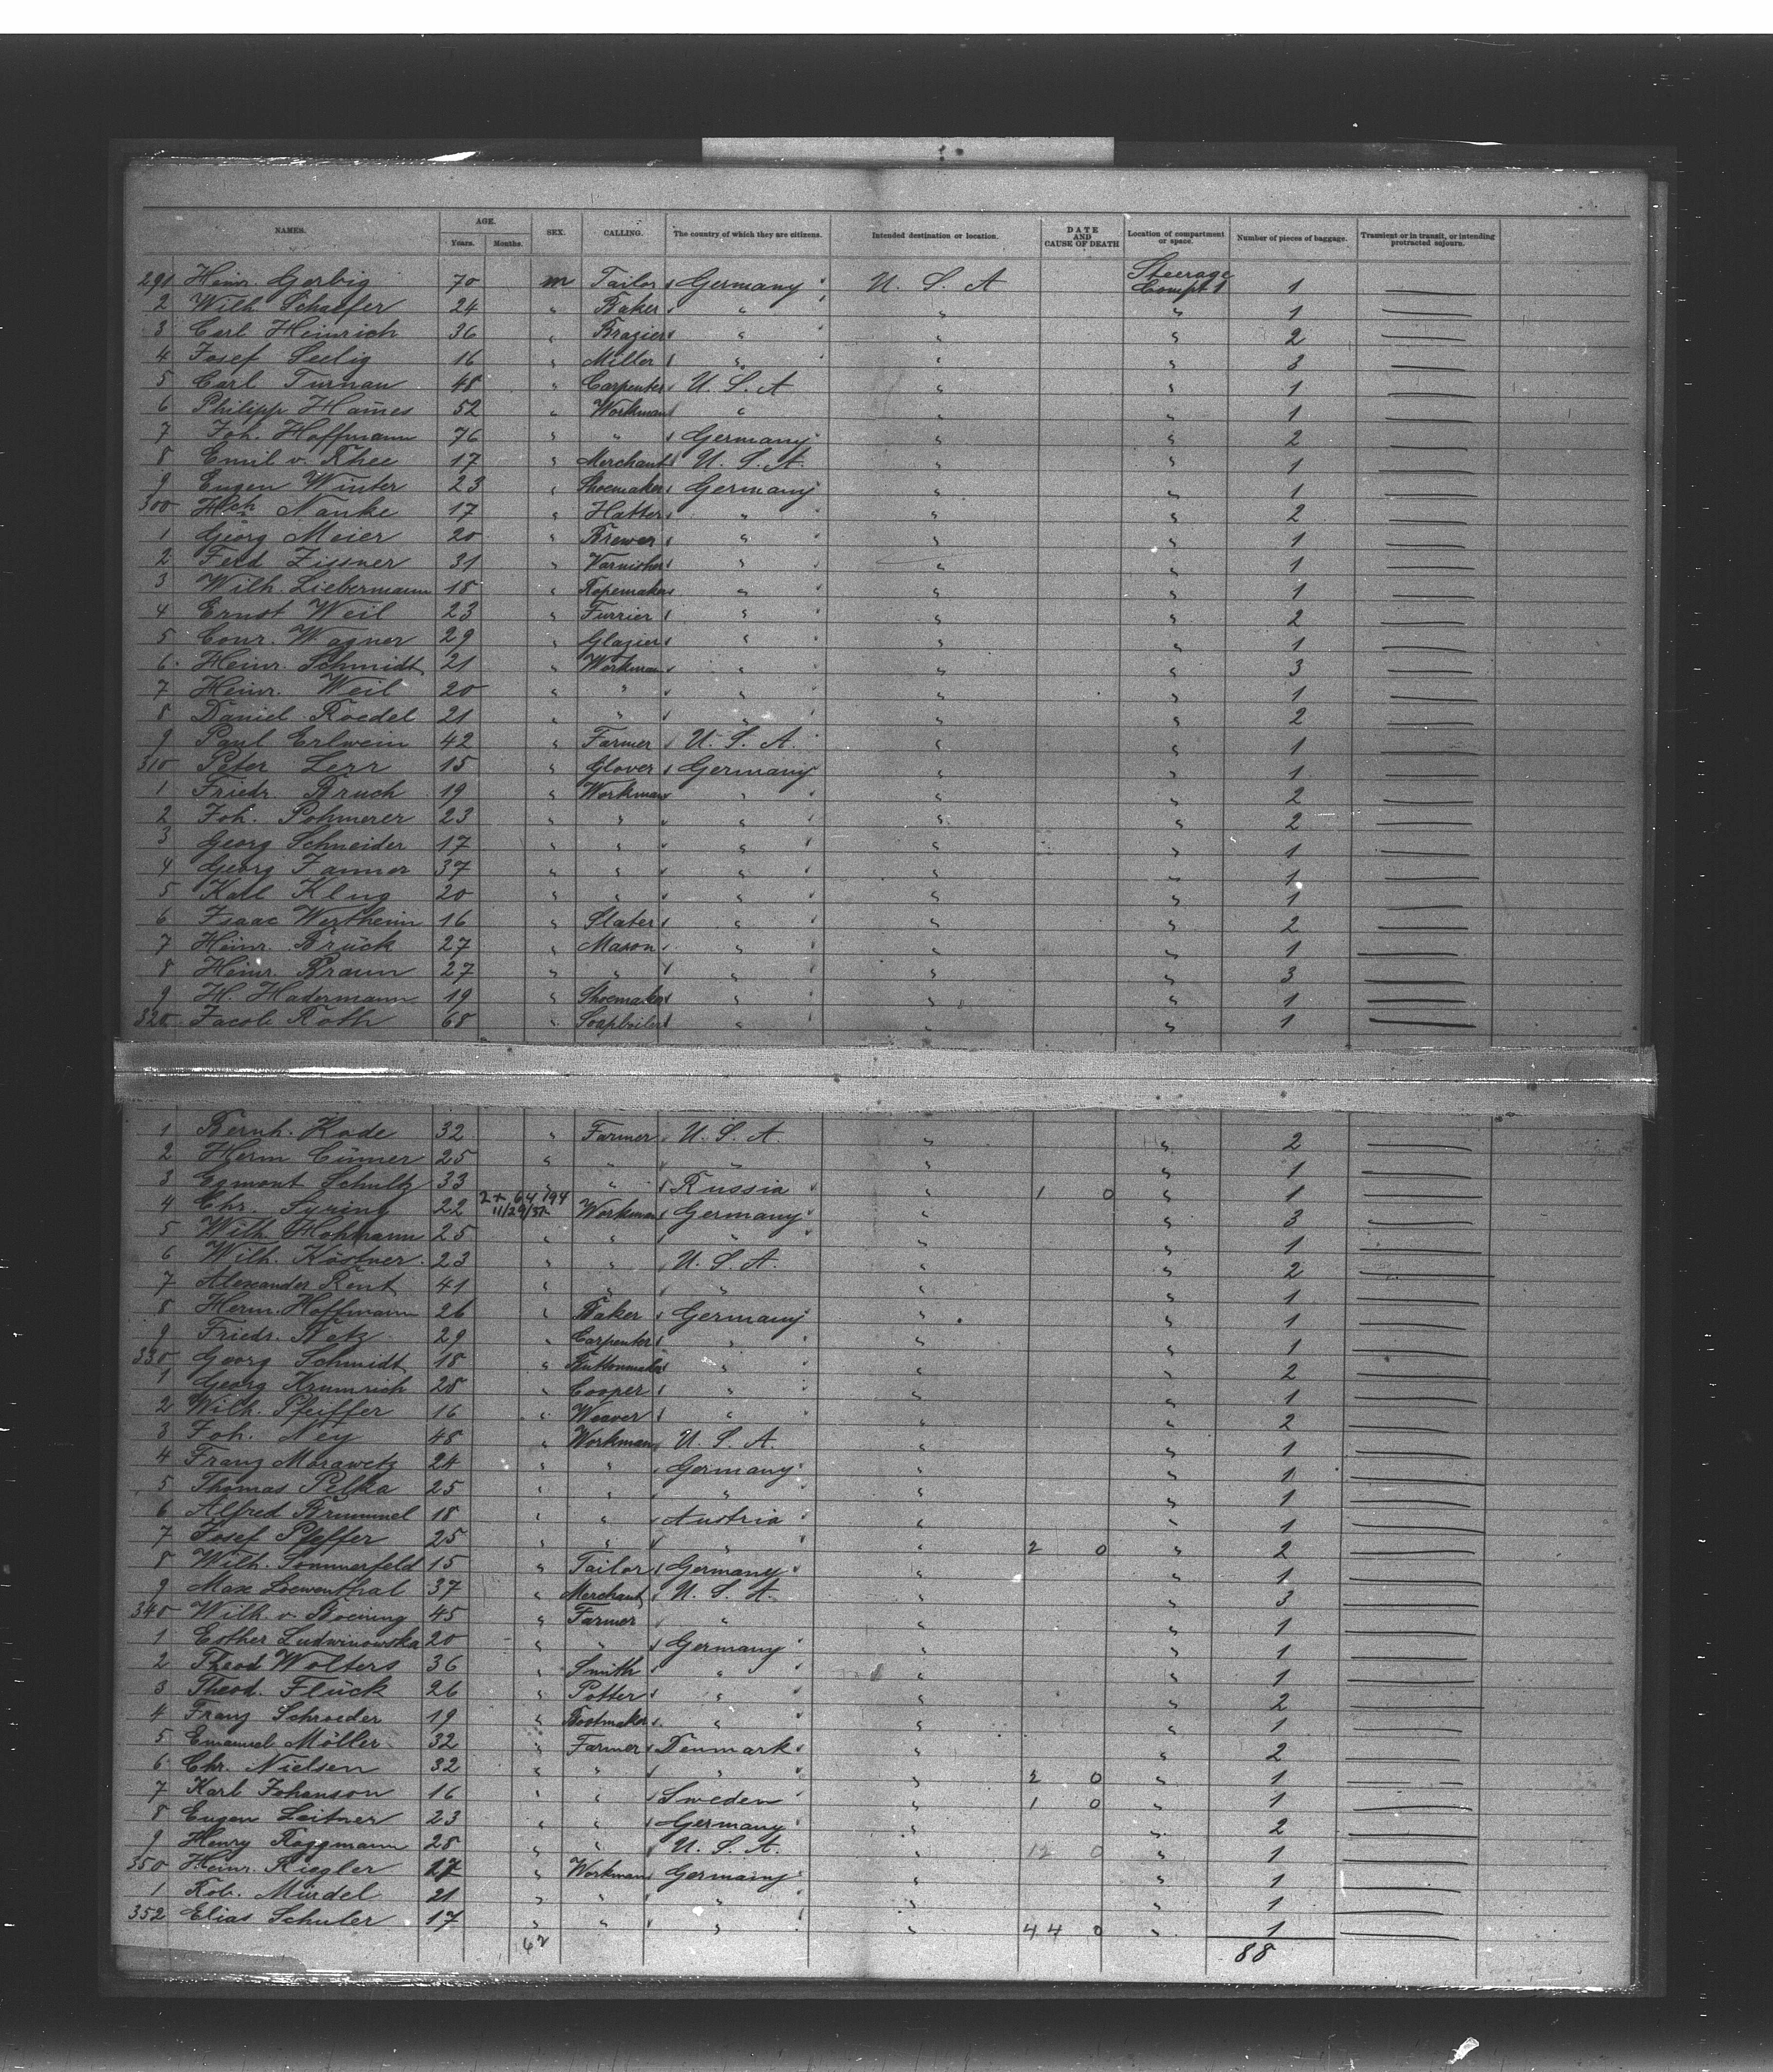 NAMES. AGE. Years. Months. SEX. CALLING. The country of which they are citizens. Intended destination or location. DATE AND CAUSE OF DEATH Location of compartment or space. Number of pieces of baggage. Transient or in transit, or intending protracted sojourn.
291 Heinr. Gerbig 70 m Tailor Germany U. S. A Steerage Compt 1 1
2 Wilh. Schaefer 24 " Baker " " " 1
3 Carl Heinrich 36 " Brazier " " " 2
4 Josef Seelig 16 " Miller " " " 3
5 Carl Turnau 48 " Carpenter U. S. A " " 1
6 Philipp Haines 52 " Workman " " " 1
7 Joh. Hoffmann 76 " " Germany " " 2
8 Emil v. Rhee 17 " Merchant U. S. A. " " 1
9 Eugen Winter 23 " Shoemaker Germany " " 1
300 Hch Nanke 17 " Hatter " " " 2
1 Georg Meier 20 " Brewer " " " 1
2 Ferd Zissner 31 " Varnisher " " " 1
3 Wilh. Liebermann 18 " Ropemaker " " " 1
4 Ernst Weil 23 " Furrier " " " 2
5 Conr. Wagner 29 " Glazier " " " 1
6 Heinr. Schmidt 21 " Workman " " " 3
7 Heinr. Weil 20 " " " " " 1
8 Daniel Roedel 21 " " " " " 2
9 Paul Erlwein 42 " Farmer U. S. A. " " 1
310 Peter Lerr 15 " Glover Germany " " 1
1 Friedr. Bruch 19 " Workman " " " 2
2 Joh. Pohmerer 23 " " " " " 2
3 Georg Schneider 17 " " " " " 1
4 Georg Zanner 37 " " " " " 1
5 Karl Klug 20 " " " " " 1
6 Isaac Wertheim 16 " Slater " " " 2
7 Heinr. Brück 27 " Mason " " " 1
8 Heinr. Braun 27 " " " " " 3
9 H. Hadermann 19 " Shoemaker " " " 1
320 Jacob Roth 68 " Soapboiler " " " 1
1 Bernh. Kode 32 " Farmer U. S. A " " 2
2 Herm 25 " " " " " 1
3 Egmont Schultz 33 " " Russia " 1 0 " 1
4 Chr. Syring 22 2 + 64 194 11/29/37 Workman Germany " " 3
5 Wilh. Hohmann 25 " " " " " 1
6 Wilh. Köstner 23 " " U. S. A. " " 2
7 Alexander Rent 41 " " " " " 1
8 Herm. Hoffmann 26 " Baker Germany " " 1
9 Friedr. Netz 29 " Carpenter " " " 1
330 Georg Schmidt 18 " Buttonmaker " " " 2
1 Georg Krumrich 28 " Cooper " " " 1
2 Wilh. Pfeiffer 16 " Weaver " " " 2
3 Joh. Ney 48 " Workman U. S. A. " " 1
4 Franz Morawetz 24 " " Germany " " 1
5 Thomas Pelka 25 " " " " " 1
6 Alfred Brummel 18 " " Austria " " 1
7 Josef Pfeffer 25 " " " " 2 0 " 2
8 Wilh. Sommerfeld 15 " Tailor Germany " " 1
9 Max Loewenthal 37 " Merchant U. S. A. " " 3
340 Wilh. v. Boening 45 " Farmer " " " 1
1 Esther Ludwinowska 20 " " Germany " " 1
2 Theod Wolters 36 " Smith " " " 1
3 Theod. Flück 26 " Potter " " " 2
4 Franz Schroeder 19 " Bootmaker " " " 1
5 Emanuel Möller 32 " Farmer Denmark " " 2
6 Chr. Nielsen 32 " " " " 2 0 " 1
7 Karl Johanson 16 " " Sweden " 1 0 " 1
8 Eugen Leitner 23 " " Germany " " 2
9 Henry Roggmann 28 " " U. S. A. " 12 0 " 1
350 Heinr. Riegler 17 " Workman Germany " " 1
1 Rob. Mürdel 21 " " " " " 1
352 Elias Schuler 17 " " " " 44 0 " 1
62 88